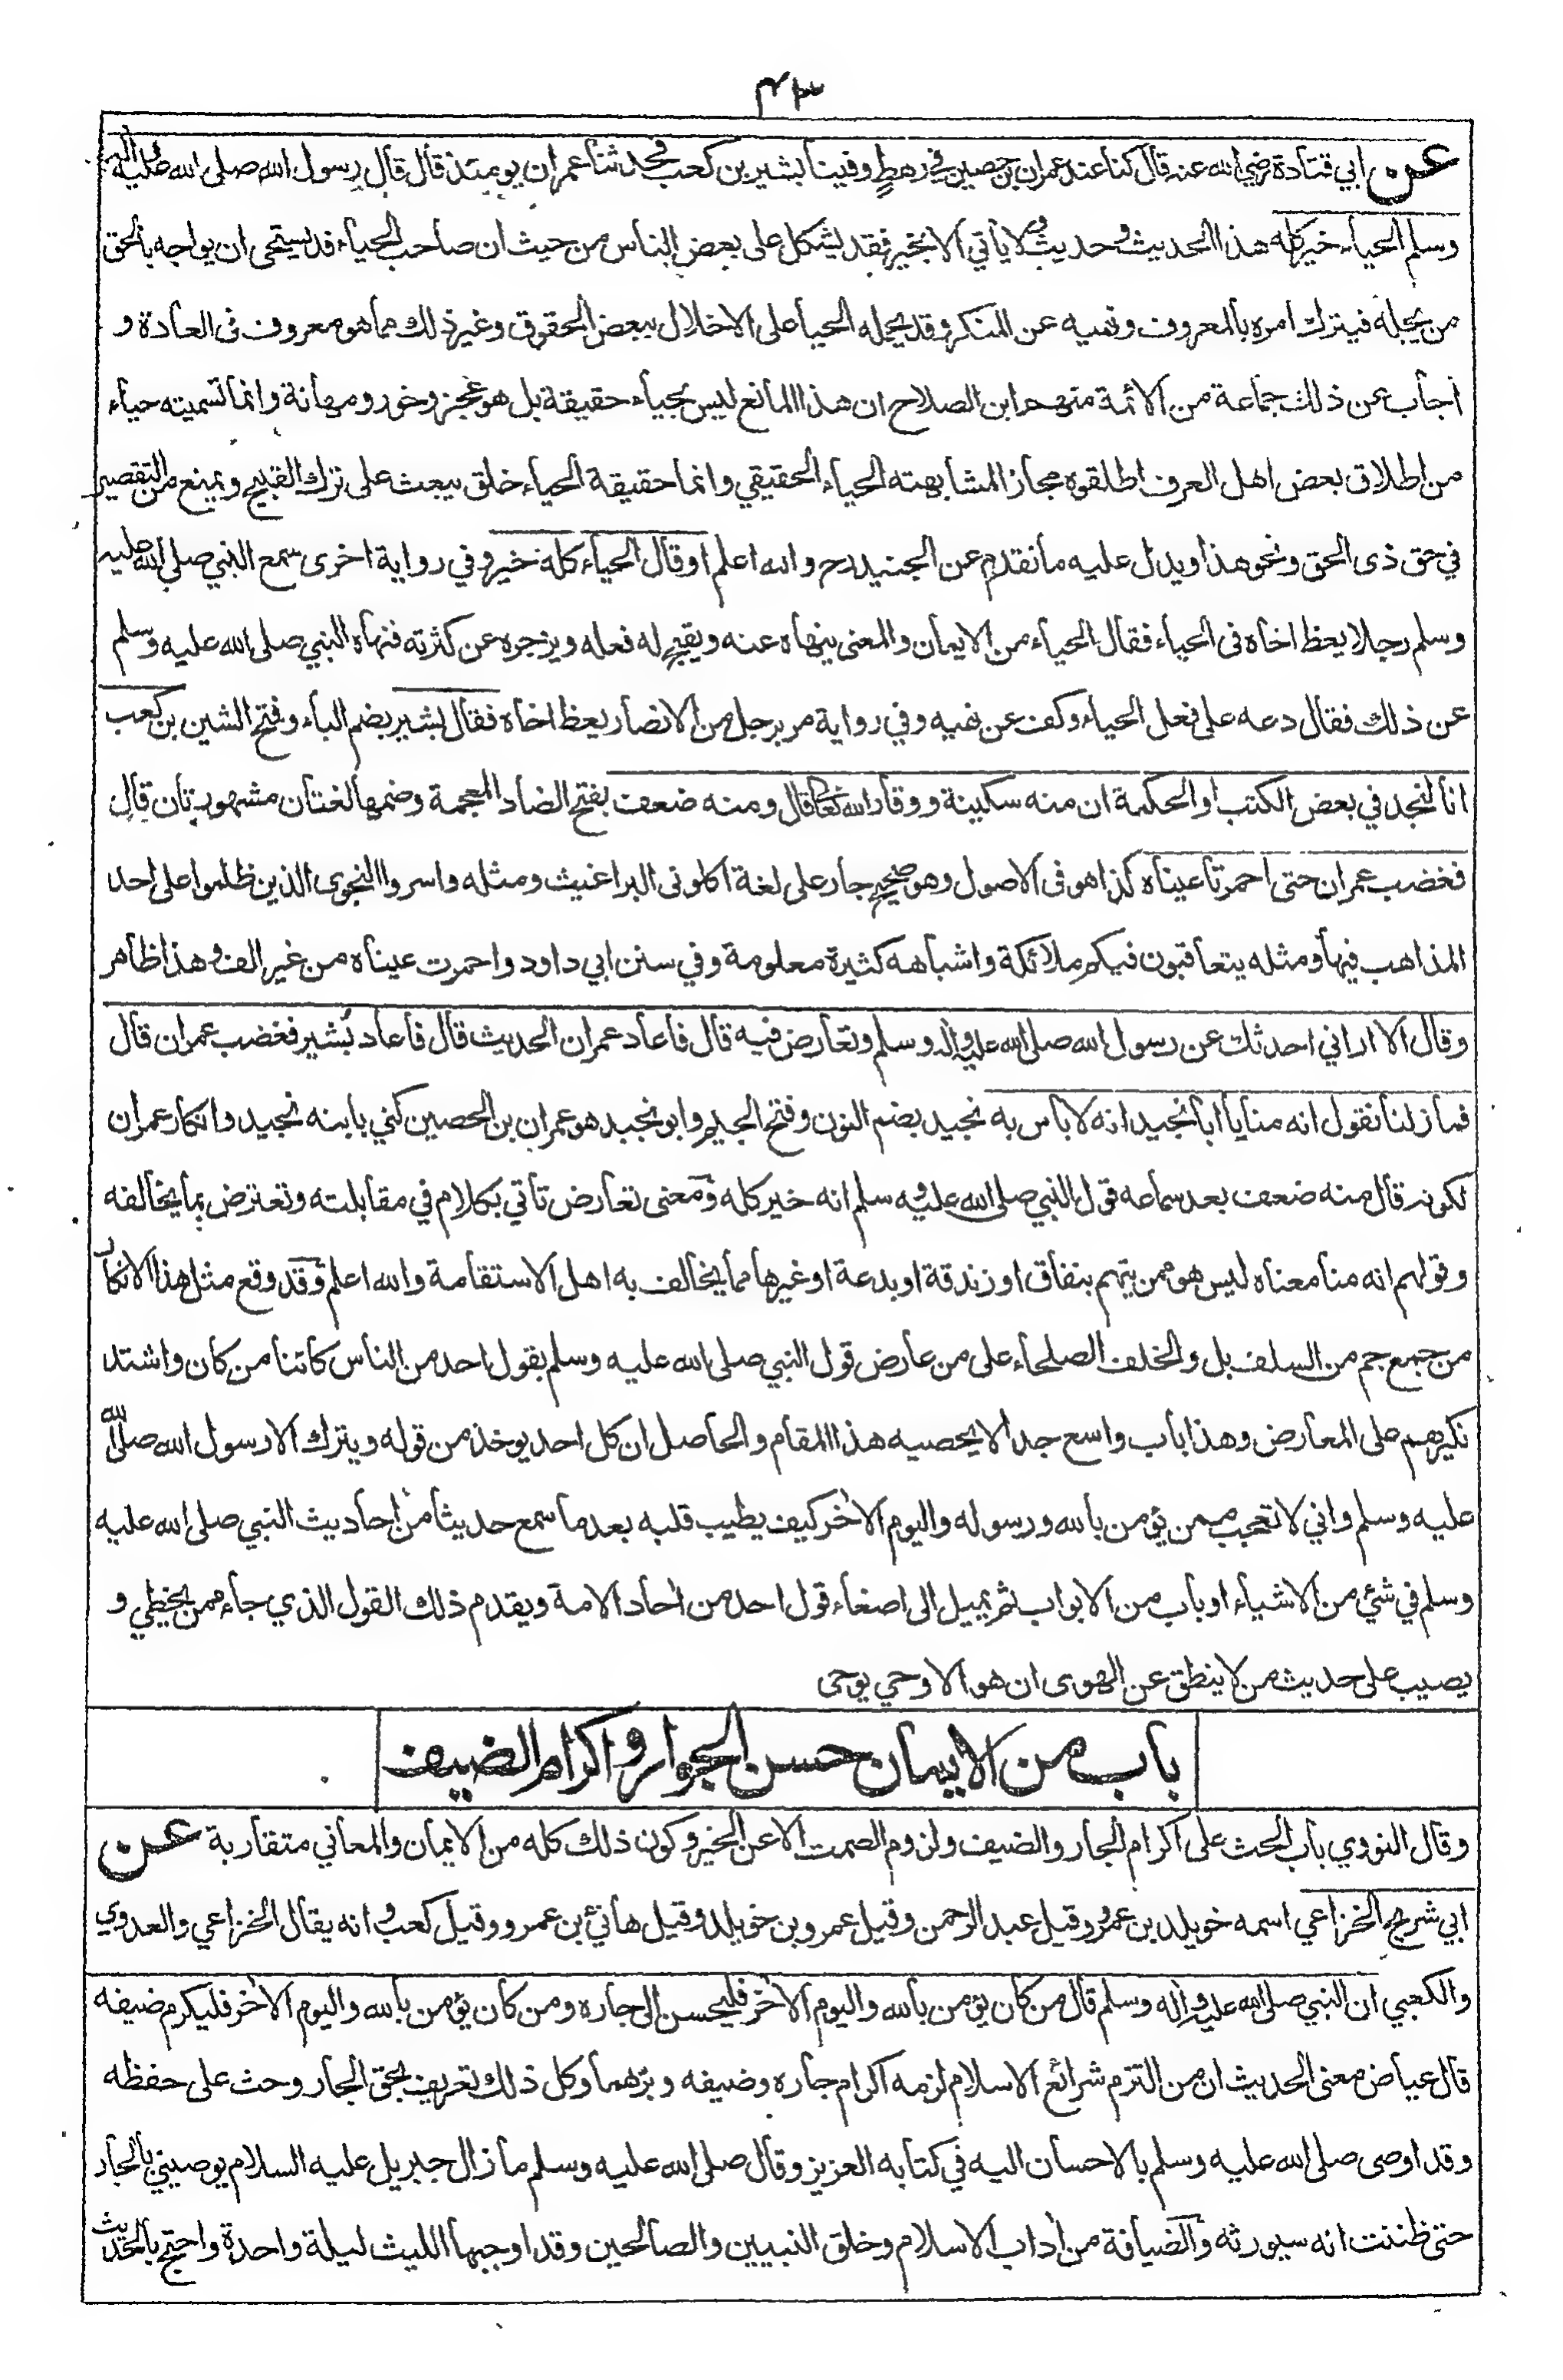 ٤٣
عن ابي قتادة رضي الله عنه قال كنا عند عمران بن حصين في رهط وفينا بشير بن كعب فحدثنا عمران يومئذ قال قال رسول الله صلى الله عليه واله
وسلم الحياء خير كله هذا الحديث وحديث ولا ياتي الا بخير فقد يشكل على بعض الناس من حيث ان صاحب الحياء قد يستحى ان يواجه بالحق
من يجله فيترك امره بالمعروف ونهيه عن المنكر وقد يحمله الحياء على الاخلال ببعض الحقوق وغير ذلك مما هو معروف فى العادة و
أجاب عن ذلك جماعة من الائمة منهم ابن الصلاح ان هذا المانع ليس بحياء حقيقة بل هو عجز وخور ومهانة وانما تسميته حياء
من اطلاق بعض اهل العرف اطلقوه مجازا لمشابهته الحياء الحقيقي وانما حقيقة الحياء خلق يبعث على ترك القبيح ويمنع من التقصير
في حق ذى الحق ونحو هذا ويدل عليه ما تقدم عن الجنيد رح والله اعلم او قال الحياء كله خير وفي رواية اخرى سمع النبي صلى الله عليه
وسلم رجلا يعظ اخاه فى الحياء فقال الحياء من الايمان والمعنى ينهاه عنه ويقبح له فعله ويزجره عن كثرته فنهاه النبي صلى الله عليه وسلم
عن ذلك فقال دعه على فعل الحياء وكف عن نهيه وفي رواية مر برجل من الانصار يعظ اخاه فقال بشير بضم الباء وفتح الشين بن كعب
انا لنجد في بعض الكتب او الحكمة ان منه سكينة ووقارا لله تعالى قال ومنه ضعف بفتح الضاد المعجمة وضمها لغتان مشهورتان قال
فغضب عمران حتى احمرتا عيناه كذا هو فى الاصول وهو صحيح جار على لغة اكلونى البراغيث ومثله واسروا النجوى الذين ظلموا على احد
المذاهب فيها ومثله يتعاقبون فيكم ملائكة واشباهه كثيرة معلومة وفي سنن ابي داود واحمرت عيناه من غير الف وهذا ظاهر
وقال الا اراني احدثك عن رسول الله صلى الله عليه واله وسلم وتعارض فيه قال فاعاد عمران الحديث قال فاعاد بُشير فغضب عمران قال
فما زلنا نقول انه منا يا ابا نجيد انه لا باس به نجيد بضم النون وفتح الجيم وابو نجيد هو عمران بن الحصين كني بابنه نجيد وانكار عمران
لكونه قال منه ضعف بعد سماعه قول النبي صلى الله عليه وسلم انه خير كله ومعنى تعارض تاتي بكلام في مقابلته وتعترض بما يخالفه
وقولهم انه منا معناه ليس هو ممن يتهم بنفاق او زندقة او بدعة او غيرها مما يخالف به اهل الاستقامة والله اعلم وقد وقع مثل هذا الانكار
من جمع جم من السلف بل والخلف الصلحاء على من عارض قول النبي صلى الله عليه وسلم بقول احد من الناس كائنا من كان واشتد
نكيرهم على المعارض وهذا باب واسع جدا لا يحصيه هذا المقام والحاصل ان كل احد يوخذ من قوله ويترك الا رسول الله صلى الله
عليه وسلم واني لا تعجب ممن يؤمن بالله ورسوله واليوم الأخر كيف يطيب قلبه بعد ما سمع حديثا من احاديث النبي صلى الله عليه
وسلم في شئ من الاشياء او باب من الابواب ثم يميل الى اصغاء قول احد من أحاد الامة ويقدم ذلك القول الذي جاء ممن يخطي و
يصيب على حديث من لا ينطق عن الهوى ان هو الا وحي يوحى
باب من الايمان حسن الجوار واكرام الضيف
وقال النووي باب الحث على اكرام الجار والضيف ولزوم الصمت الا عن الخير وكون ذلك كله من الايمان والمعاني متقاربة عن
ابي شريح الخزاعي اسمه خويلد بن عمرو وقيل عبد الرحمن وقيل عمرو بن خويلد وقيل هانئ بن عمرو وقيل كعب وانه يقال الخزاعي والعدوي
والكعبي ان النبي صلى الله عليه واله وسلم قال من كان يؤمن بالله واليوم الأخر فليحسن الى جاره ومن كان يؤمن بالله واليوم الأخر فليكرم ضيفه
قال عياض معنى الحديث ان من التزم شرائع الاسلام لزمه اكرام جاره وضيفه وبرهما وكل ذلك تعريف بحق الجار وحث على حفظه
وقد اوصى صلى الله عليه وسلم بالاحسان اليه في كتابه العزيز وقال صلى الله عليه وسلم ما زال جبريل عليه السلام يوصيني بالجار
حتى ظننت انه سيورثه والضيافة من أداب الاسلام وخلق النبيين والصالحين وقد اوجبها الليث ليلة واحدة واحتج بالحديث